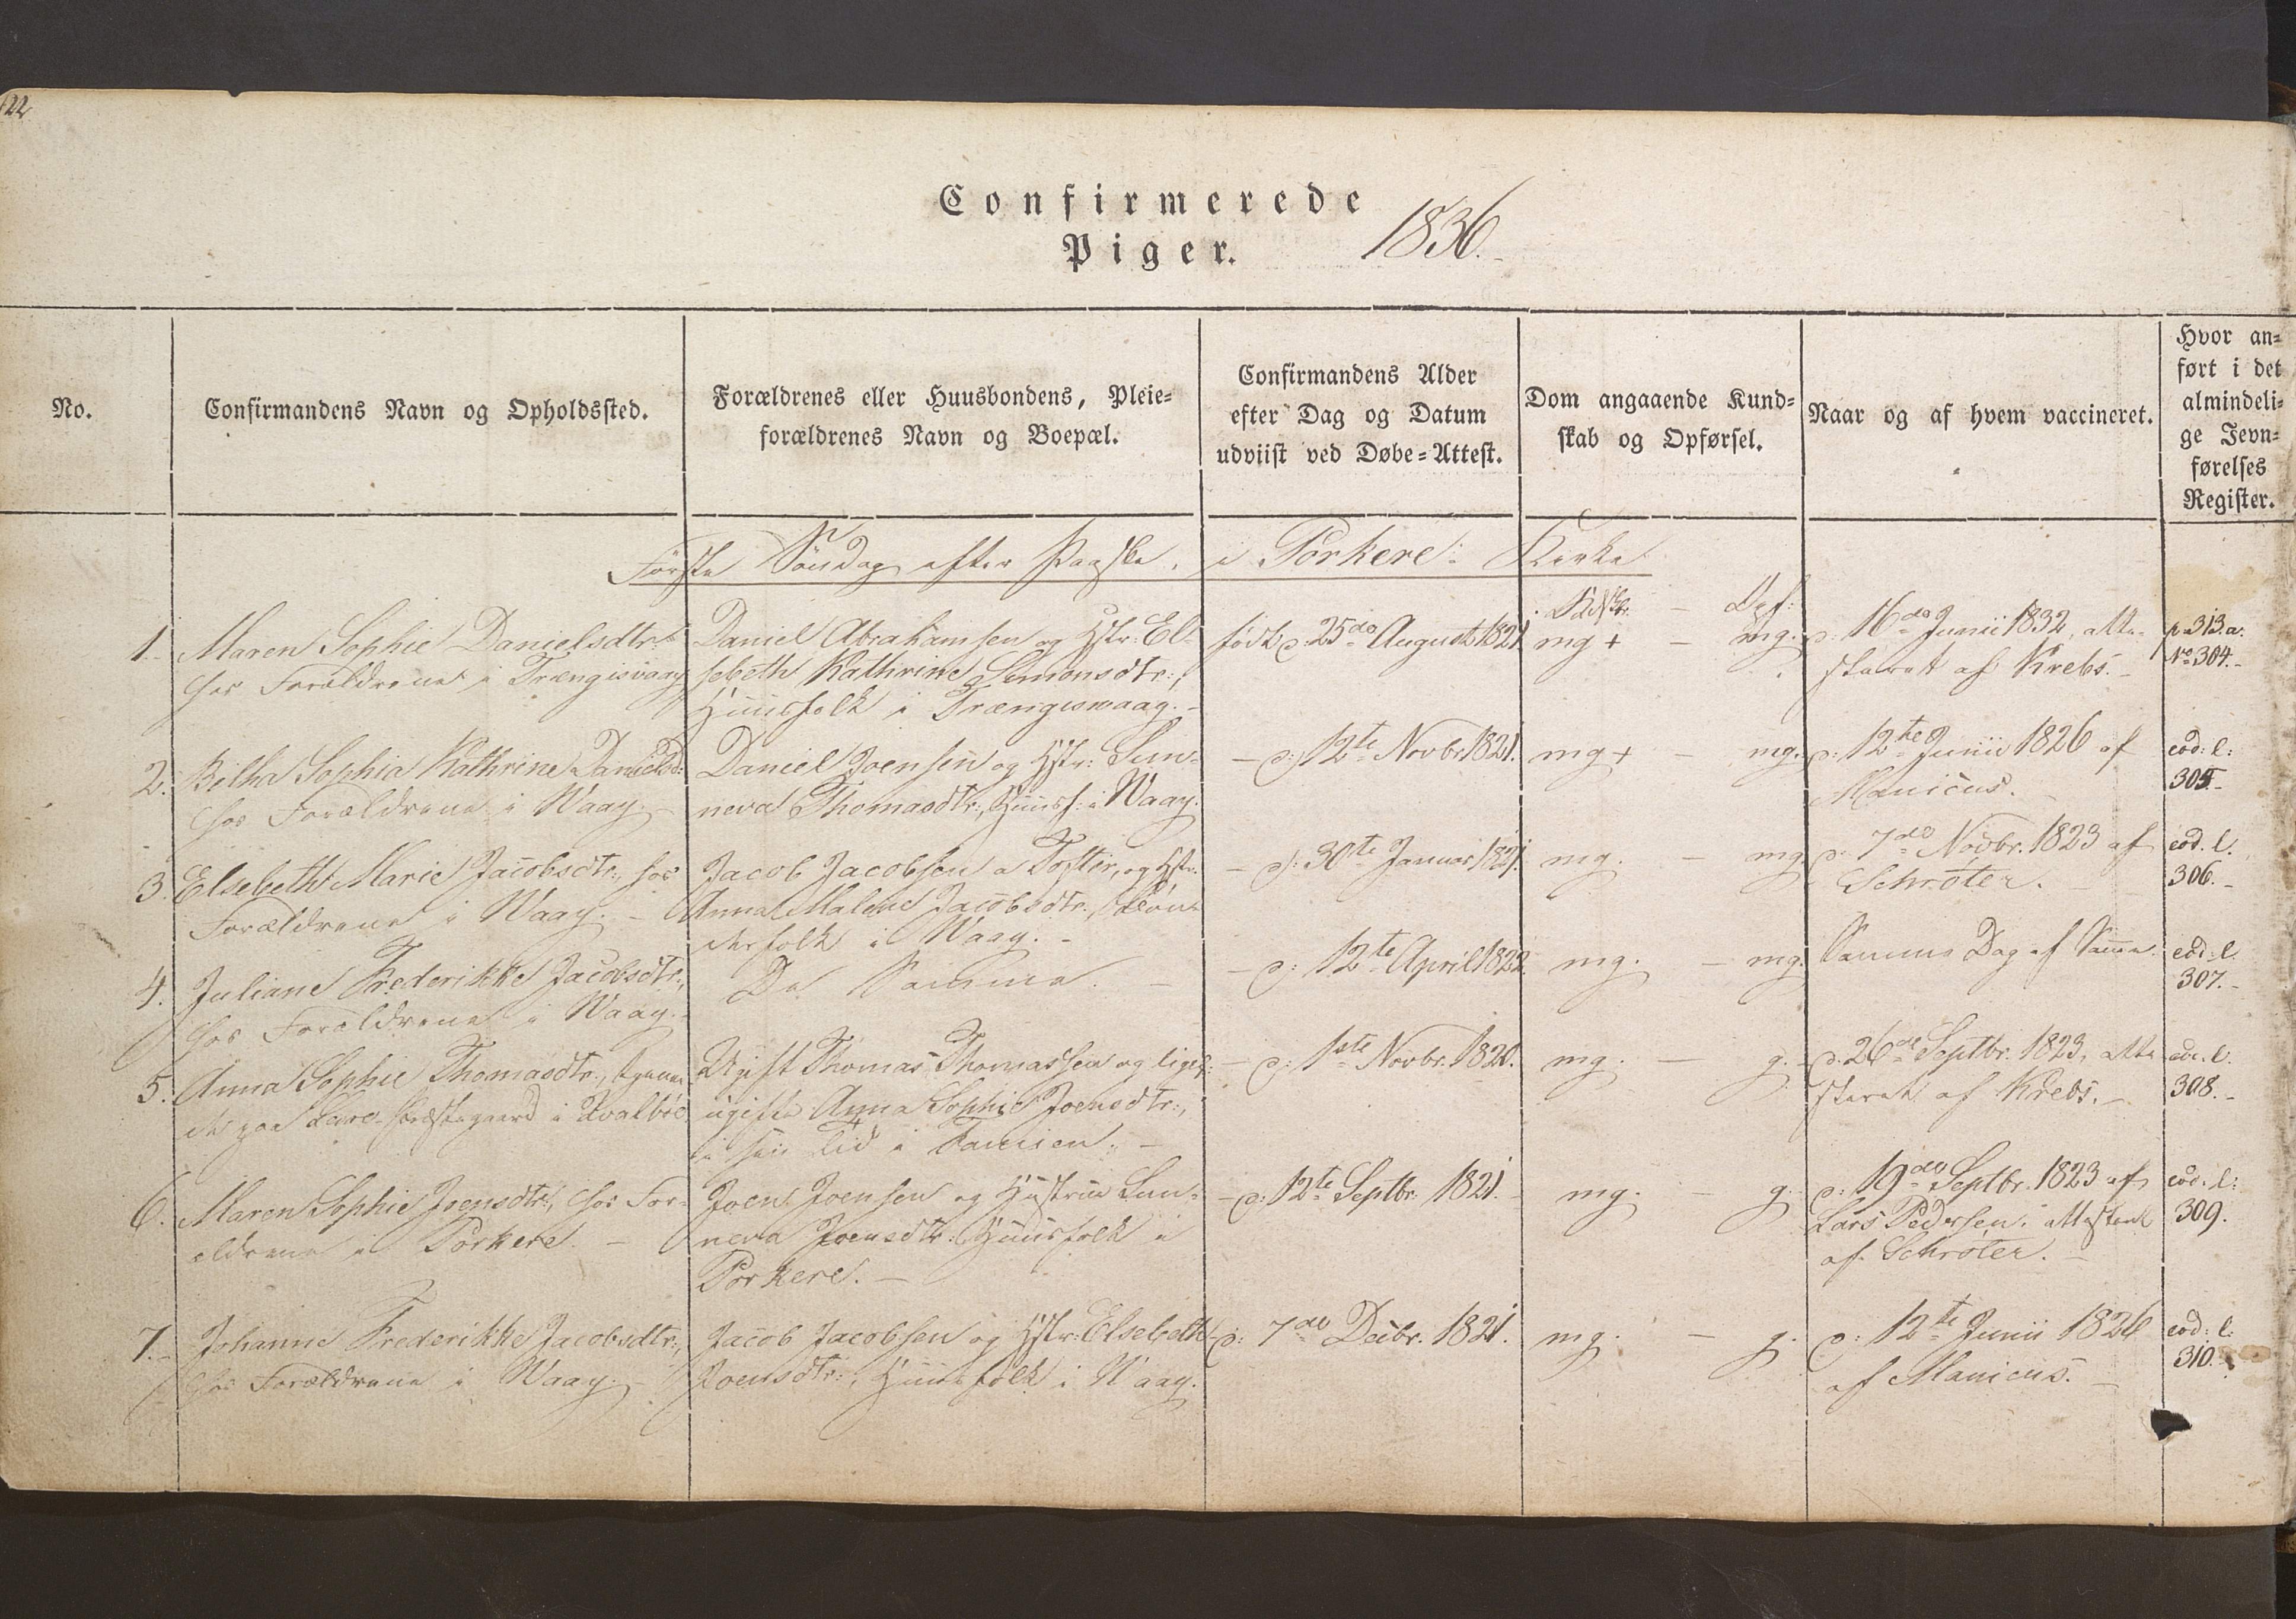 122
Confirmerede
Piger. 1836.
No.
Confirmandens Navn og Opholdssted.
Forældrenes eller Huusbondens, Pleie=
forældrenes Navn og Boepæl.
Confirmandens Alder
efter Dag og Datum
udviist ved Døbe=Attest.
Dom angaaende Kund=
skab og Opførsel.
Naar og af hvem vaccineret.
Hvor an=
ført i det
almindeli=
ge Jevn=
førelses
Register.
Første Søndag efter Paaske, i Porkere Kirke
1. Maren Sophie Danielsdtr:
hos Forældrene i Trængisvaag
Daniel Abrahamsen og Hstr: El-
sebeth Kathrine Simonsdtr:,
Huusfolk i Trængiswaag.-
født d: 25de August 1821
mg + - mg.
d: 16de Junii 1832, atte-
steret af Krebs.-
p 313.a.
No 304.-
2. Sophia Kathrine Danielsd:
hos Forældrene i Waag.-
Daniel Joensen og Hstr: Sun-
neva Thomasdtr:, Huusf: i Waag.
- d: 12te Novbr 1821.
mg + - mg.
d: 12te Junii 1826 af
Manicus.
eod: l:
305.-
3. Elsebeth Marie Jacobsdtr:, hos
Forældrene i Waag.-
Jacob Jacobsen a Tofter, og Hstr:
Anna Malene Jacobsdtr:, Bøn-
derfolk i Waag.-
- d: 30te Januar 1821.
mg. - mg
d: 7de Novbr. 1823 af
Schrøter.-
eod. l.
306.-
4. Juliane Frederikke Jacobsdtr:,
hos Forældrene i Waag.-
De Samme.-
- d: 12te April 1822.
mg. - mg.
Samme Dag af Samme.
eod: l.
307.-
5. Anna Sophie Thomasdtr:, tjenen-
de paa Præstegaard i Kvalbøe
Ugift Thomas Thomassen og ligel:
ugifte Anna Sophie Joensdtr:,
i sin Tid i Famien.-
- d: 1ste Novbr. 1820.
mg. - g.
d. 26de Septbr. 1823, atte-
steret af Krebs.-
eod. l.
308.-
6. Maren Sophie Joensdtr:, hos For-
ældrene i Porkere.-
Joen Joensen og Hustrue Sun-
neva Joensdtr: Huusfolk i
Porkere.-
- d: 12te Septbr. 1821.-
mg. - g.
d: 19de Septbr. 1823 af
Lars Pedersen. attesteret
af Schrøter.-
eod. l:
309.
7.- Johanne Frederikke Jacobsdtr:,
hos Forældrene i Waag.-
Jacob Jacobsen og Hstr: Elsebeth
Joensdtr:, Huusfolk i Waag.
d: 7de Decbr. 1821.
mg. - g.
d: 12te Junii 1826
af Manicus.-
eod: l:
310.